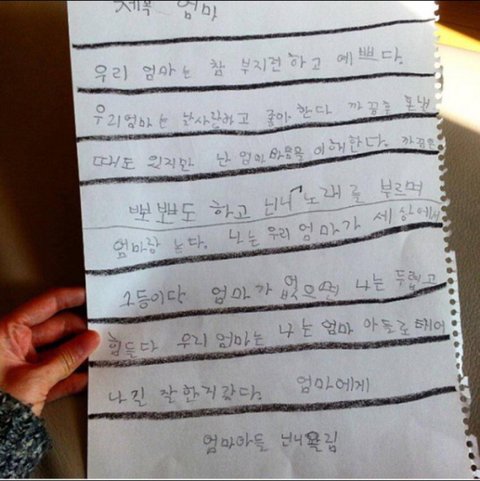 제목 엄마
우리 엄마는 참 부지런하고 예쁘다.
우리엄마는 날사랑하고 좋아한다 까끔은 혼낼
때도 있지만 난 엄마마음을 이해한다. 까끔은
뽀뽀도 하고 닌니 노래를 부르며
엄마랑 논다. 나는 우리 엄마가 세상에서
1등이다 엄마가 없으면 나는 두렵고
힘들다 우리 엄마는 나는 엄마 아들로 태어
나길 잘한거같다. 엄마에게
엄마아들 닌니올림